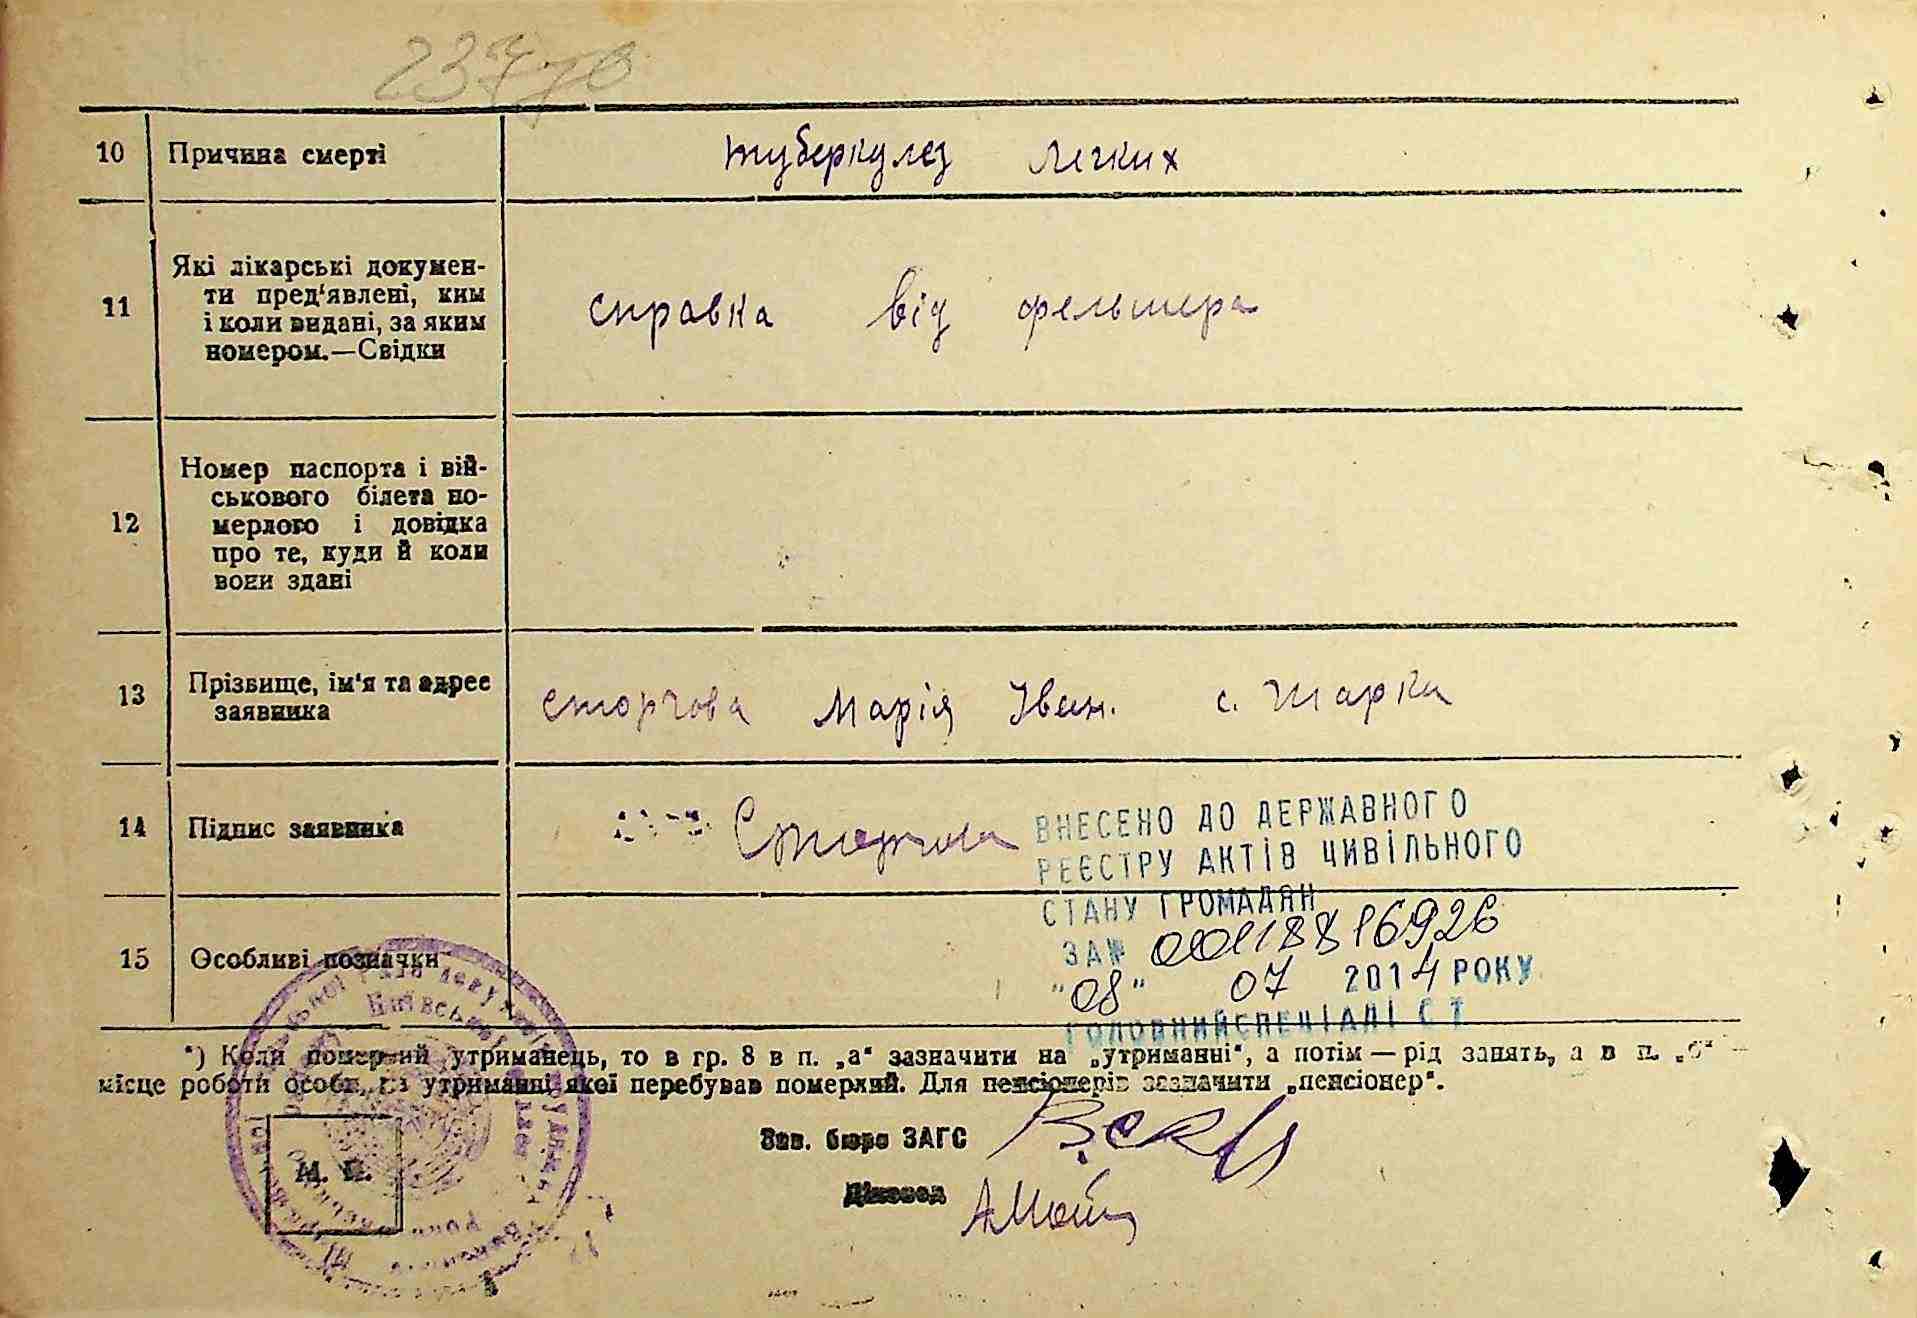 23770
10 Причина смерті туберкулез легких
11 Які лікарські докумен-
ти пред'явлені, ким
і коли видані, за яким
номером.—Свідки
справка від фельшера
12 Номер паспорта і вій-
ськового білета по-
мерлого і довідка
про те, куди й коли
вони здані
13 Прізбище, ім'я та адрес
заявника
Сторчова Марія Іван. с. Шарки
14 Підпис заявника
15 Особливі позначки
ВНЕСЕНО ДО ДЕРЖАВНОГО
РЕЄСТРУ АКТІВ ЦИВІЛЬНОГО
СТАНУ ГРОМАДЯН
ЗА № 00118816926
"08" 07 2014 РОКУ
ГОЛОВНИЙ СПЕЦІАЛІСТ
*) Коли померлий утриманець, то в гр. 8 в п. „а“ зазначити на „утриманні“, а потім — рід занять, а в п. „б“ —
місце роботи особи, на утриманні якої перебував померлий. Для пенсіонерів зазначити „пенсіонер“.
Зав. бюро ЗАГС
Діловод
М. П.
Київської